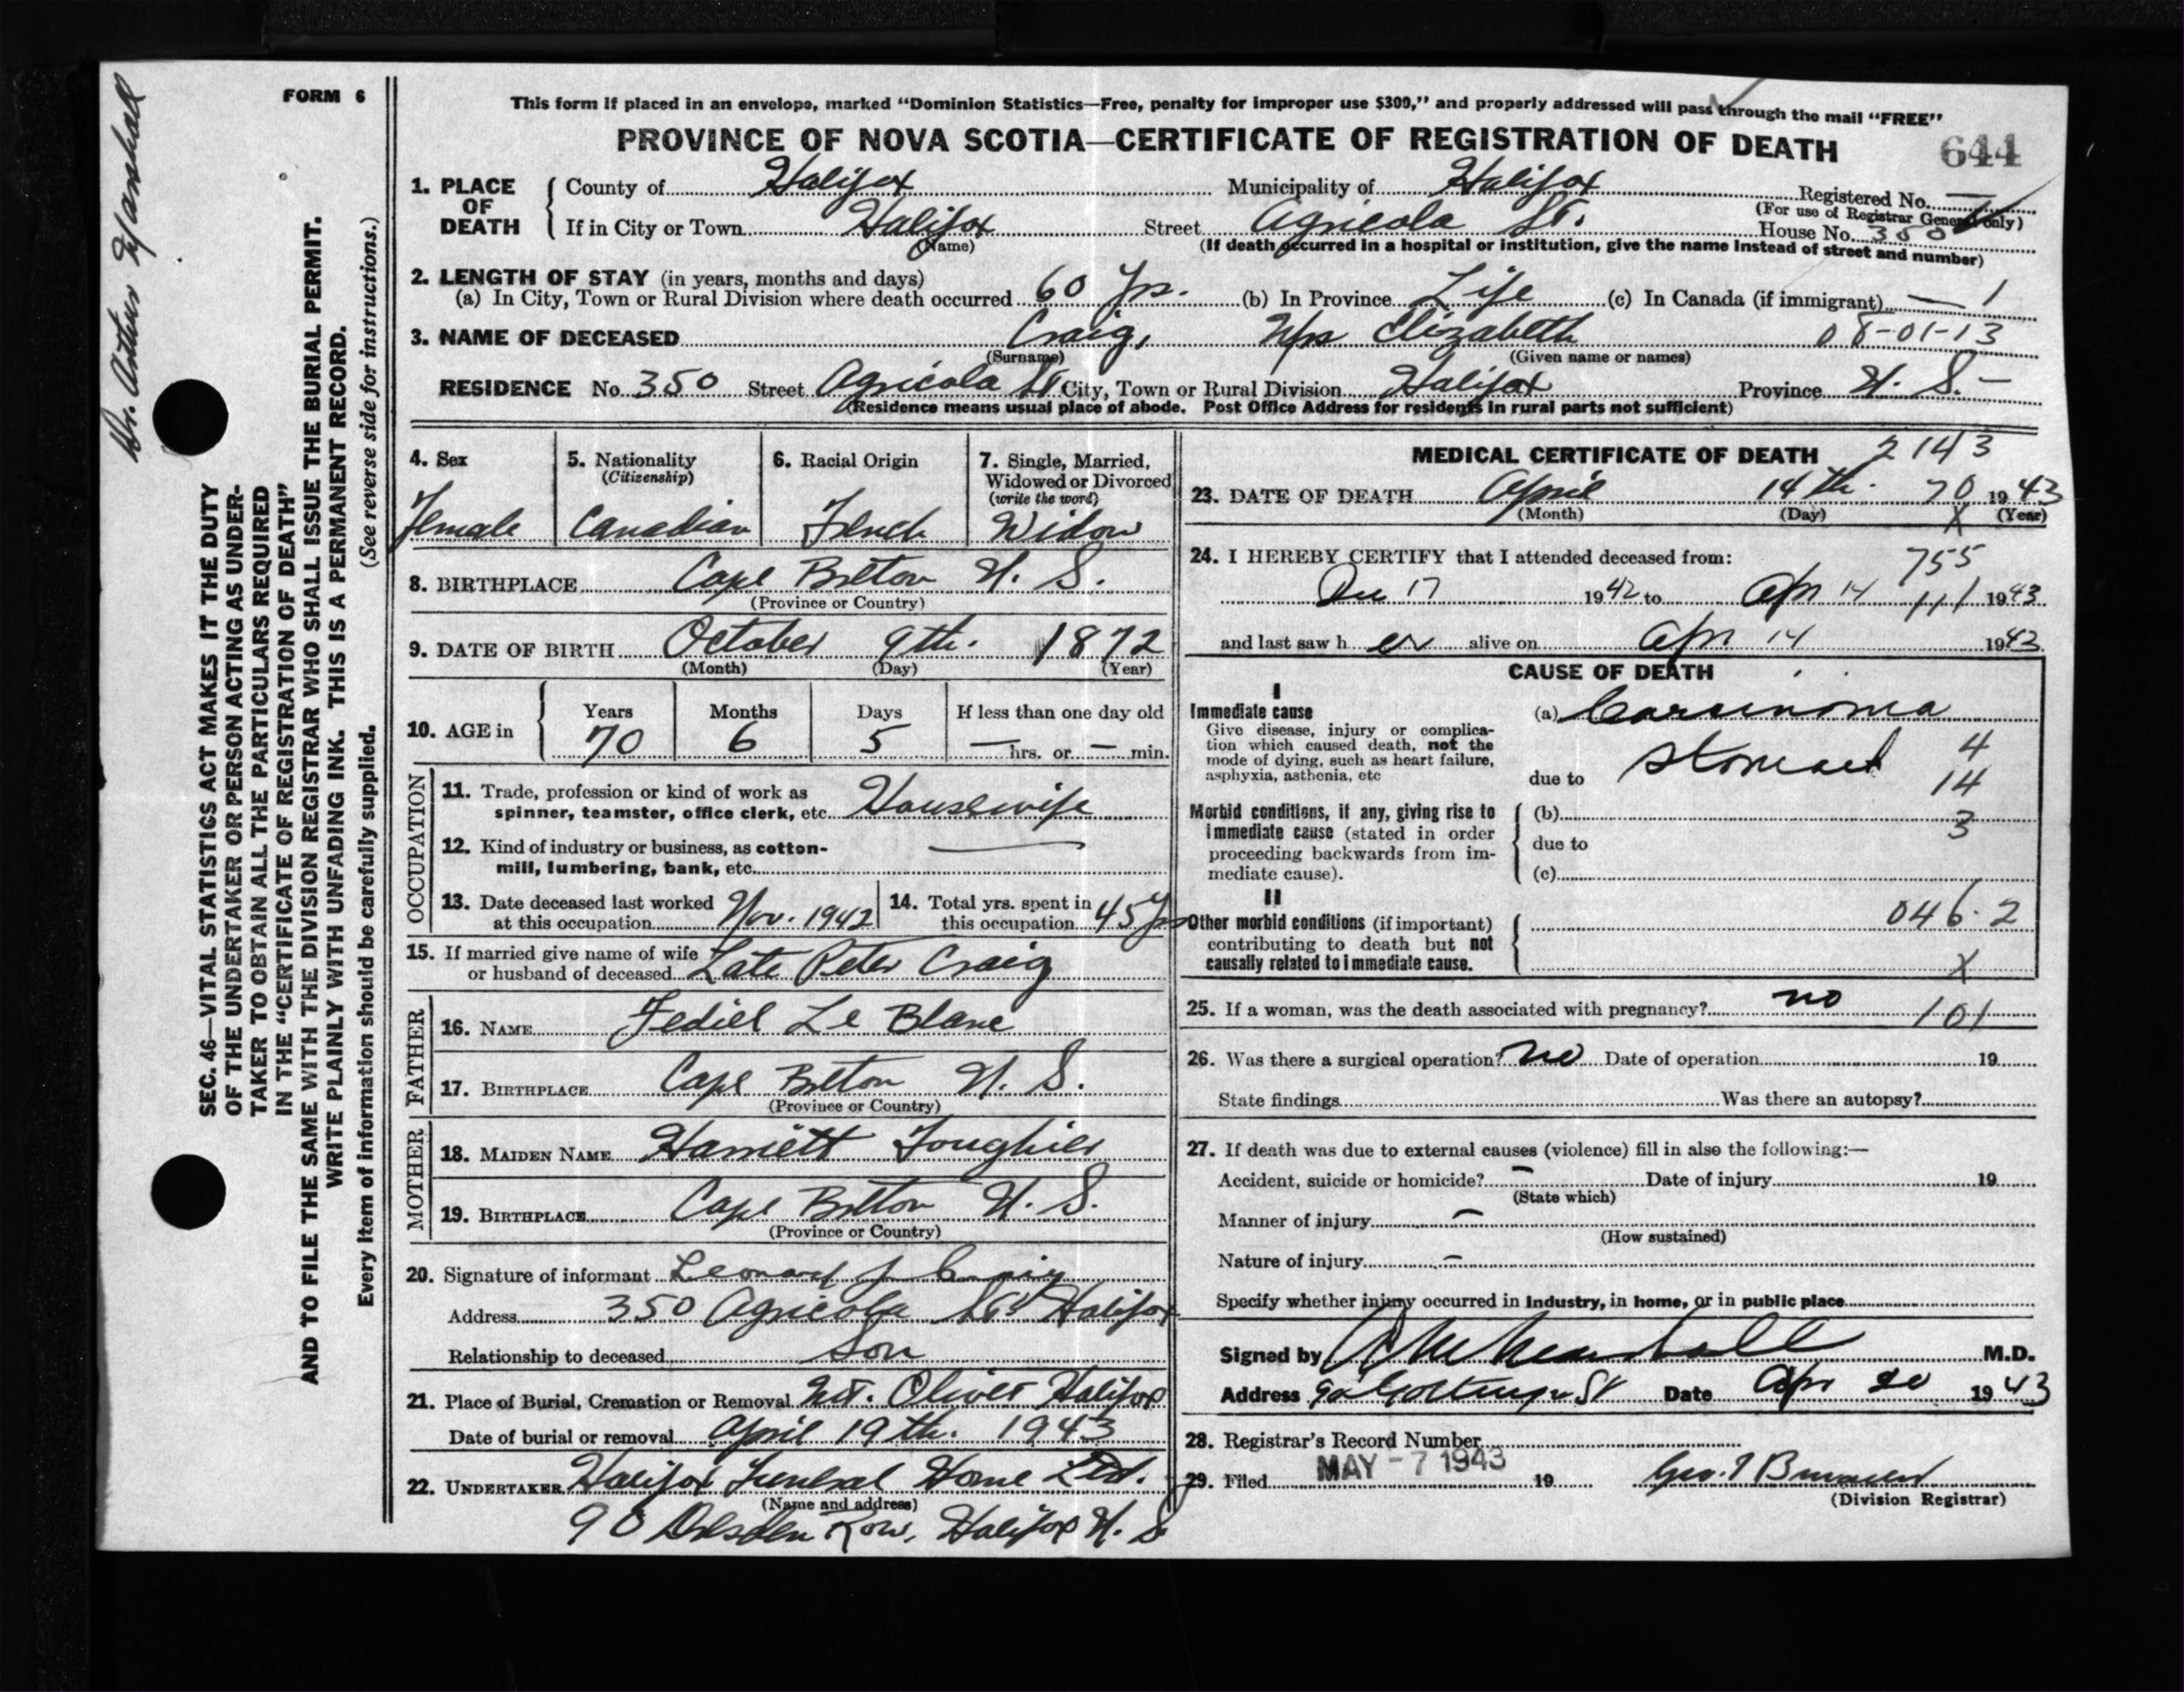 Dr. Arthur Marshall
FORM 6
SEC. 46—VITAL STATISTICS ACT MAKES IT THE DUTY
OF THE UNDERTAKER OR PERSON ACTING AS UNDER-
TAKER TO OBTAIN ALL THE PARTICULARS REQUIRED
IN THE "CERTIFICATE OF REGISTRATION OF DEATH"
AND TO FILE THE SAME WITH THE DIVISION REGISTRAR WHO SHALL ISSUE THE BURIAL PERMIT.
WRITE PLAINLY WITH UNFADING INK. THIS IS A PERMANENT RECORD.
Every item of information should be carefully supplied. (See reverse side for instructions.)
This form if placed in an envelope, marked "Dominion Statistics—Free, penalty for improper use $300," and properly addressed will pass through the mail "FREE"
PROVINCE OF NOVA SCOTIA—CERTIFICATE OF REGISTRATION OF DEATH 644
1. PLACE OF DEATH County of Halifax Municipality of Halifax Registered No.
(For use of Registrar General only)
If in City or Town Halifax Street Agricola St. House No. 350
(Name) (If death occurred in a hospital or institution, give the name instead of street and number)
2. LENGTH OF STAY (in years, months and days)
(a) In City, Town or Rural Division where death occurred 60 Yrs. (b) In Province Life (c) In Canada (if immigrant) — 1
3. NAME OF DECEASED Craig, Mrs Elizabeth 08-01-13
(Surname) (Given name or names)
RESIDENCE No. 350 Street Agricola St City, Town or Rural Division Halifax Province N. S. —
(Residence means usual place of abode. Post Office Address for residents in rural parts not sufficient)
4. Sex 5. Nationality 6. Racial Origin 7. Single, Married,
(Citizenship) Widowed or Divorced
(write the word)
Female Canadian French Widow
8. BIRTHPLACE Cape Breton N. S.
(Province or Country)
9. DATE OF BIRTH October 9th. 1872
(Month) (Day) (Year)
10. AGE in Years Months Days If less than one day old
70 6 5 — hrs. or — min.
OCCUPATION
11. Trade, profession or kind of work as
spinner, teamster, office clerk, etc. Housewife
12. Kind of industry or business, as cotton-
mill, lumbering, bank, etc. —
13. Date deceased last worked 14. Total yrs. spent in
at this occupation Nov. 1942 this occupation 45 Yrs
15. If married give name of wife
or husband of deceased Late Peter Craig
FATHER
16. NAME Fediel Le Blanc
17. BIRTHPLACE Cape Breton N. S.
(Province or Country)
MOTHER
18. MAIDEN NAME Harriett
19. BIRTHPLACE Cape Breton N. S.
(Province or Country)
20. Signature of informant Leonard J Craig
Address 350 Agricola St. Halifax
Relationship to deceased Son
21. Place of Burial, Cremation or Removal Mt. Olivet Halifax
Date of burial or removal April 19th. 1943
22. UNDERTAKER Halifax Funeral Home Ltd.
(Name and address)
90 Dresden Row, Halifax N. S
MEDICAL CERTIFICATE OF DEATH 2143
23. DATE OF DEATH April 14th. 70 1943
(Month) (Day) X (Year)
24. I HEREBY CERTIFY that I attended deceased from:
755
Dec 17 1942 to Apr 14 111 1943
and last saw h er alive on Apr 14 1943
CAUSE OF DEATH
I
Immediate cause (a) Carcinoma
Give disease, injury or complica-
tion which caused death, not the
mode of dying, such as heart failure,
asphyxia, asthenia, etc
due to Stomach
4
14
3
Morbid conditions, if any, giving rise to (b)
immediate cause (stated in order
proceeding backwards from im- due to
mediate cause). (c)
II
Other morbid conditions (if important) 046.2
contributing to death but not
causally related to immediate cause. X
25. If a woman, was the death associated with pregnancy? no 101
26. Was there a surgical operation? no Date of operation 19
State findings Was there an autopsy?
27. If death was due to external causes (violence) fill in also the following:—
Accident, suicide or homicide? — Date of injury 19
(State which)
Manner of injury —
(How sustained)
Nature of injury —
Specify whether injury occurred in industry, in home, or in public place
Signed by Marshall M.D.
Address Gottingen St Date Apr 20 1943
28. Registrar's Record Number
29. Filed MAY -7 1943 19
(Division Registrar)